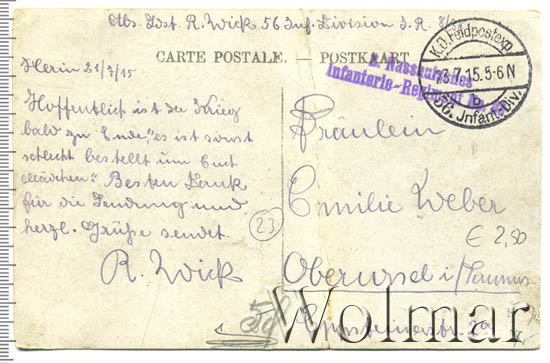 Abs. Lost. R. Wick 56 Inf. Division I. R.
CARTE POSTALE. — POSTKARTE
K.D. Feldpostexp.
23.7.15.5-6N
b
56. Infant. Div.
2. Nassauisches
Infanterie-Regiment No. 88
21/7/15
Hoffentlich ist der Krieg
bald zu Ende, "es ist sonst
schlecht bestellt um Euch
Mädchen". Besten Dank
für die Sendung und
herzl. Grüße sendet
R. Wick
Fräulein
Emilie Weber
Oberursel i/Taunus
Eppsteinerstr. 2a
23
€ 2,50
Wolmar